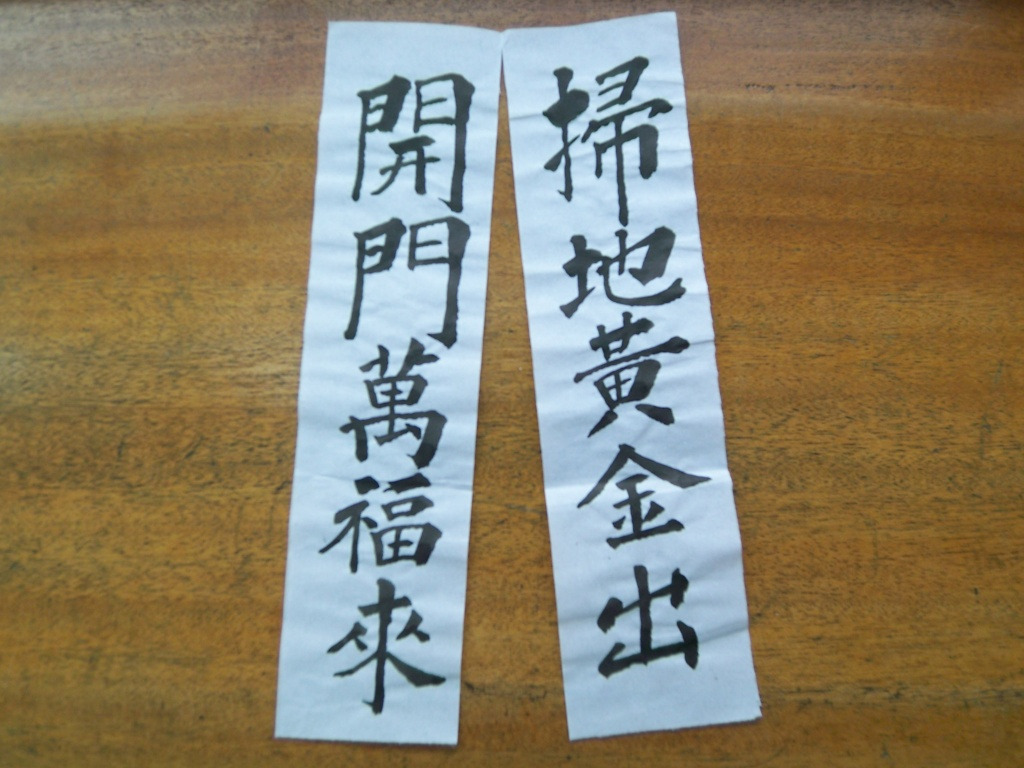 掃地黃金出
開門萬福來